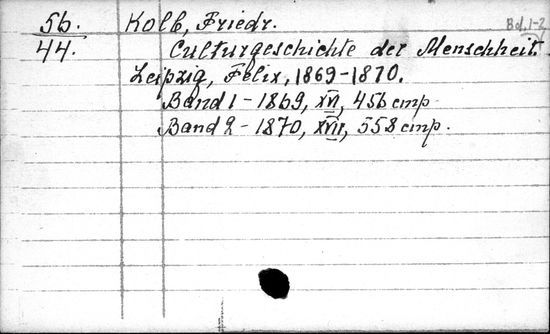 56. Kolb, Friedr. Bd. 1-2
44. Culturgeschichte der Menschheit.
Leipzig, Felix, 1869-1870.
Band 1 - 1869, XVI, 456 стр.
Band 2 - 1870, XVII, 558 стр.